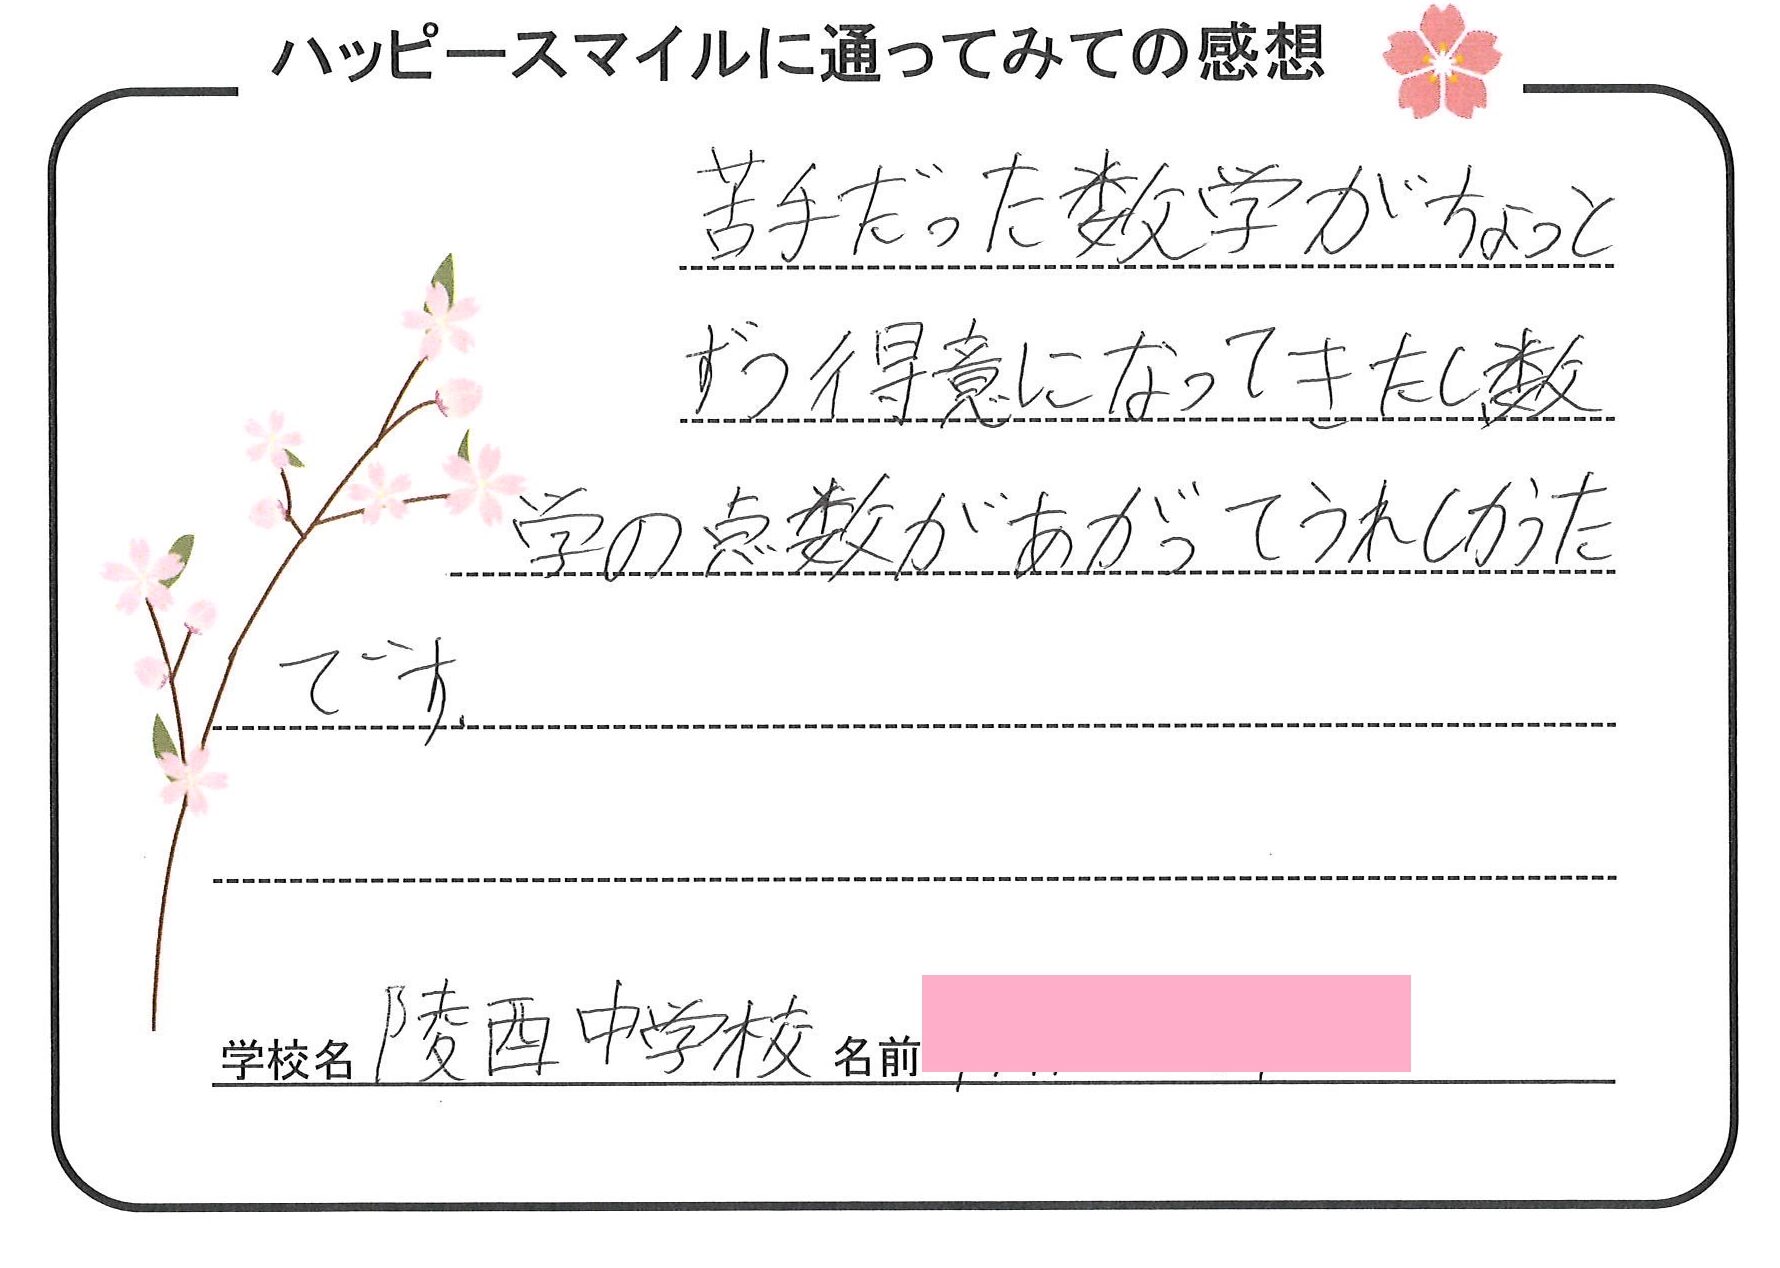 ハッピースマイルに通ってみての感想
苦手だった数学がちょっと
ずつ得意になってきたし数
学の点数があがってうれしかった
です.
学校名 陵西中学校 名前